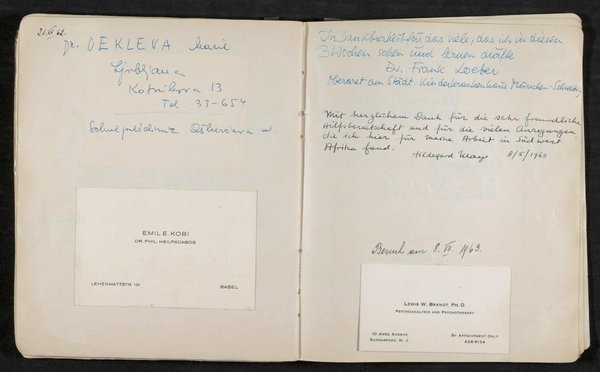 21.XI.62.
Dr. DEKLEVA Marié
Ljubljana
Kotnikova 13
Tel. 33-654
EMIL E. KOBI
DR. PHIL. HEILPÄDAGOG
LEHENMATTSTR. 191 BASEL
In Dankbarkeit für das viele, das ich in diesen
3 Wochen sehen und lernen durfte
Dr. Frank Loeber
Oberarzt am Städt. Kinderkrankenhaus München-Schwabing
Mit herzlichem Dank für die sehr freundliche
Hilfsbereitschaft und für die vielen Anregungen,
die ich hier für meine Arbeit in Südwest
Afrika fand.
Hildegard 8/5/1963
Besuch am 8. VII. 1963.
LEWIS W. BRANDT, PH. D.
PSYCHOANALYSIS AND PSYCHOTHERAPY
10 AMES AVENUE BY APPOINTMENT ONLY
RUTHERFORD, N. J. 438-8134